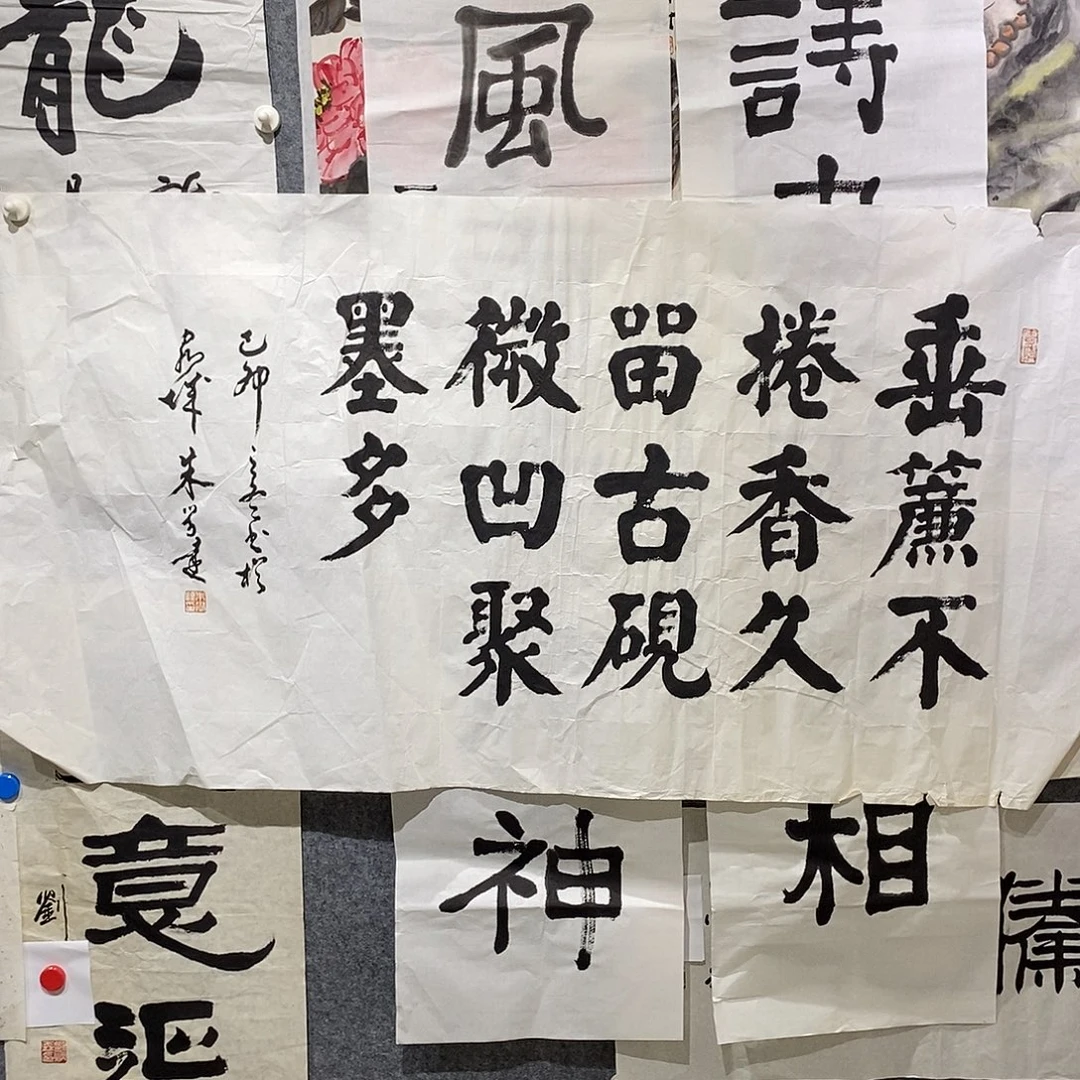 龍
風
詩
垂簾不
捲香久
畱古硯
微凹聚
墨多
己卯
朱
意
劉
神
相